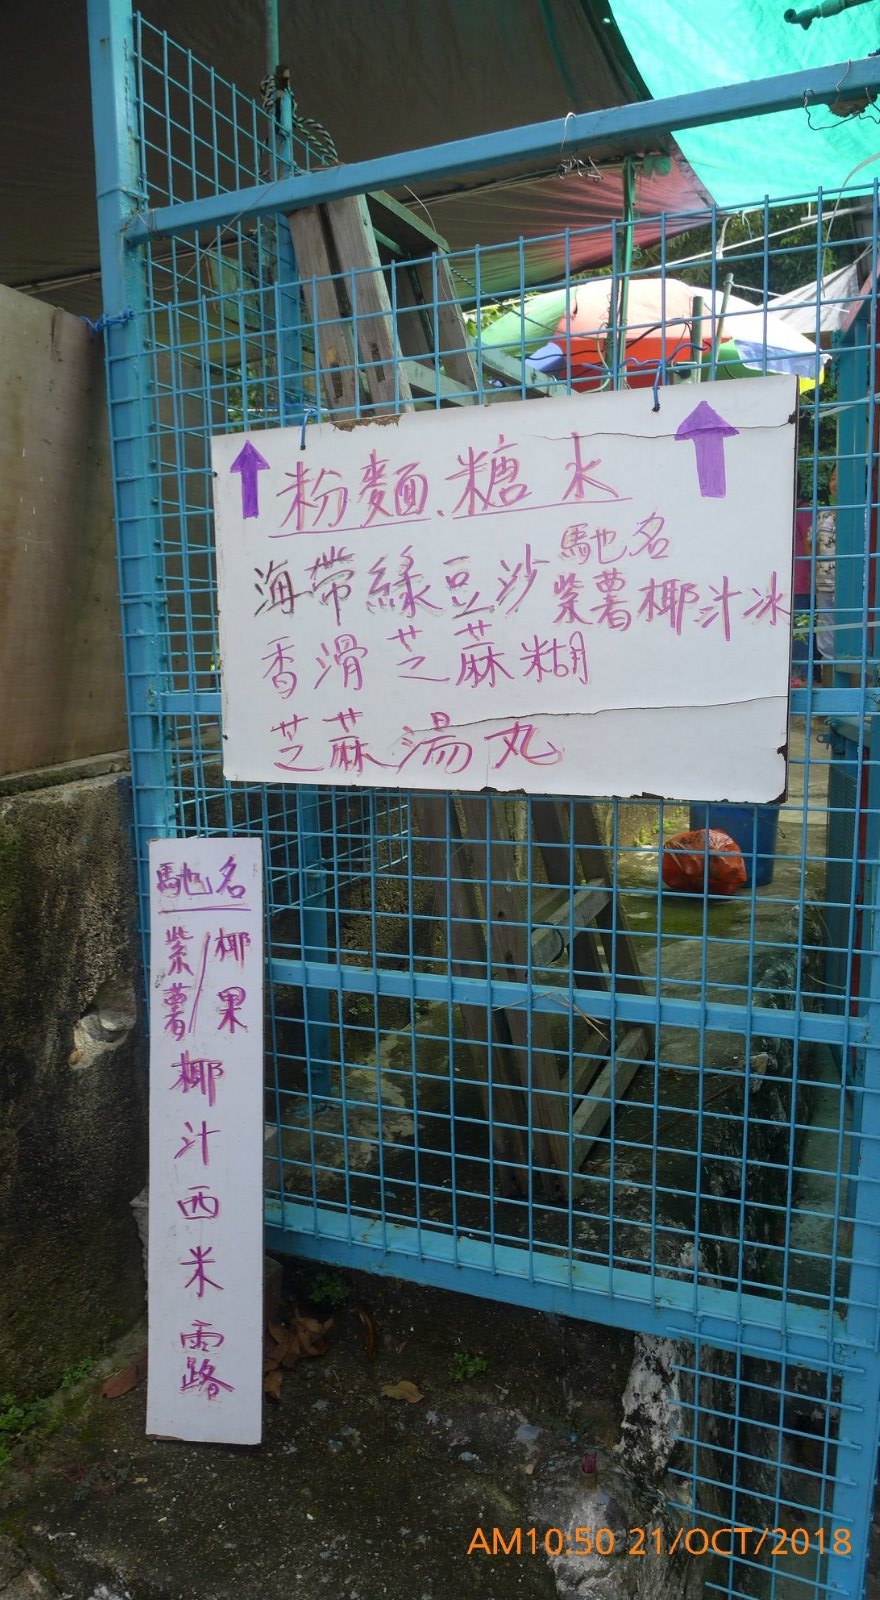 粉麵、糖水
海帶綠豆沙 馳名
紫薯椰汁冰
香滑芝蔴糊
芝蔴湯丸
馳名
紫薯/椰果
椰汁西米露
AM10:50 21/OCT/2018